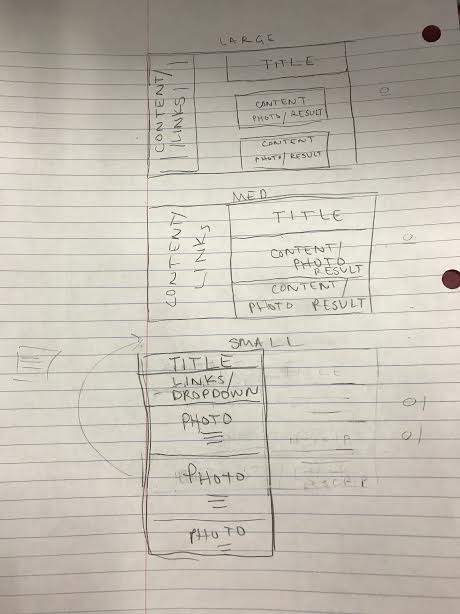 LARGE
CONTENT/
LINKS
TITLE
CONTENT
PHOTO/RESULT
CONTENT
PHOTO/RESULT
MED
CONTENT/
LINKS
TITLE
CONTENT/
PHOTO
RESULT
CONTENT/
PHOTO RESULT
SMALL
TITLE
LINKS/
DROPDOWN
PHOTO
PHOTO
PHOTO